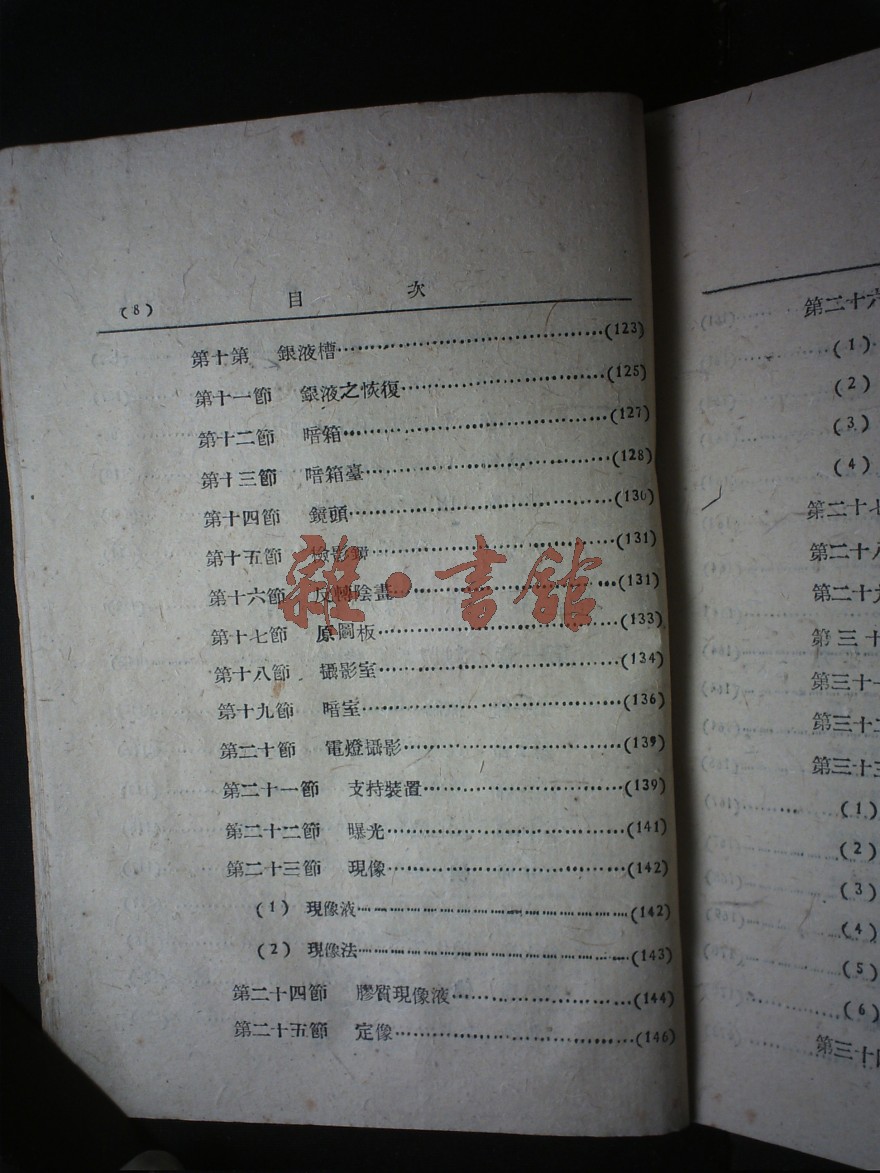 (8) 目 次
第十第 銀液槽……(123)
第十一節 銀液之恢復……(125)
第十二節 暗箱……(127)
第十三節 暗箱臺……(128)
第十四節 鏡頭……(130)
第十五節 影……(131)
第十六節 反轉陰畫……(131)
第十七節 原圖板……(133)
第十八節 攝影室……(134)
第十九節 暗室……(136)
第二十節 電燈攝影……(139)
第二十一節 支持裝置……(139)
第二十二節 曝光……(141)
第二十三節 現像……(142)
(1) 現像液……(142)
(2) 現像法……(143)
第二十四節 膠質現像液……(144)
第二十五節 定像……(146)
雜·書館
第二十六
(1)
(2)
(3)
(4)
第二十七
第二十八
第二十九
第三十
第三十一
第三十二
第三十三
(1)
(2)
(3)
(4)
(5)
(6)
第三十四